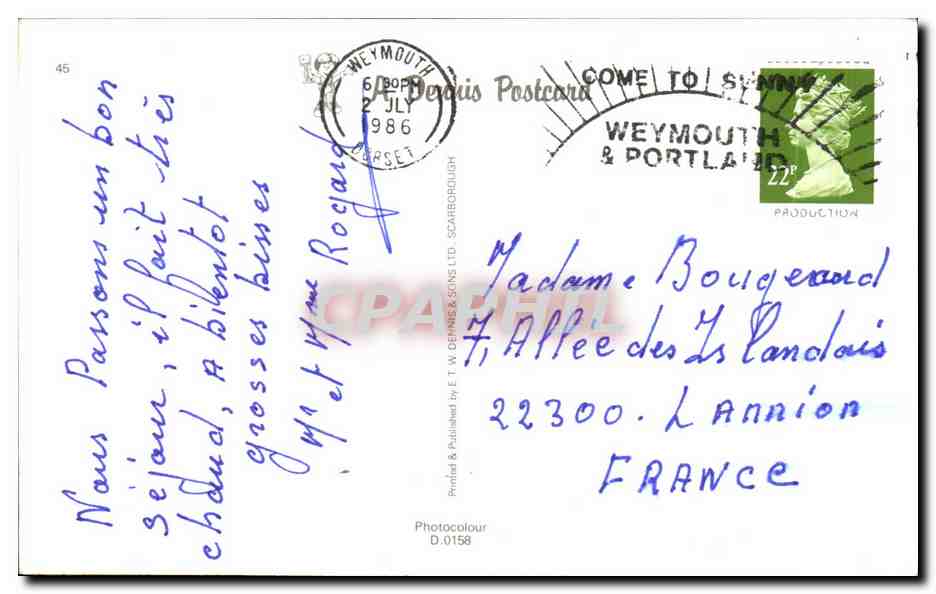 45
A Dennis Postcard
WEYMOUTH
6 30PM
2 JLY
1986
DORSET
COME TO SUNNY
WEYMOUTH
& PORTLAND
22P
PRODUCTION
Nous Passons un bon
séjour, il fait très
chaud, A bientot
grosses bisses
Mr et Mme Rogard
Printed & Published by E. T. W. DENNIS & SONS LTD., SCARBOROUGH
Madame Bougeard
7, Allée des Islandais
22300. LANNION
FRANCE
CPAPHIL
Photocolour
D.0158